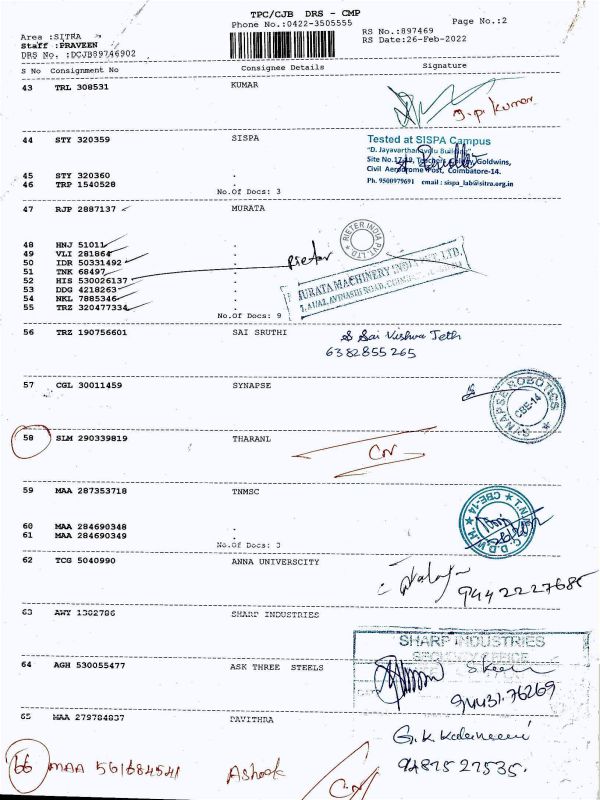 TPC/CJB DRS - CMP
Phone No.:0422-3505555
Page No.:2
Area :SITRA
Staff :PRAVEEN
DRS No. :DCJB89746902
RS No.:897469
RS Date:26-Feb-2022
S No Consignment No Consignee Details Signature
43 TRL 308531 KUMAR
J.P. Kumar
44 STY 320359 SISPA
Tested at SISPA Campus
"D. Jayavarthanavelu Building"
Site No.17-19, Teachers Colony, Goldwins,
Civil Aerodrome Post, Coimbatore-14.
Ph. 9500979691 email : sispa_lab@sitra.org.in
45 STY 320360 .
46 TRP 1540528 .
No.Of Docs: 3
47 RJP 2887137 MURATA
RIETER INDIA PVT LTD
48 HNJ 51011 .
49 VLI 281864 .
50 IDR 50331492 .
Rieter
51 TNK 68497 .
52 HIS 530026137 .
53 DDG 4218263 .
54 NKL 7885346 .
55 TRZ 320477334 .
MURATA MACHINERY INDIA PVT. LTD.
AVINASHI ROAD,
No.Of Docs: 9
56 TRZ 190756601 SAI SRUTHI
S Sai Vishwa Teth
6382855265
57 CGL 30011459 SYNAPSE
SYNAPSE ROBOTICS
CBE-14
58 SLM 290339819 THARANL
CN
59 MAA 287353718 TNMSC
CBE-14
60 MAA 284690348 .
61 MAA 284690349 .
No.Of Docs: 3
62 TCG 5040990 ANNA UNIVERSCITY
9442227685
63 AWY 1302786 SHARP INDUSTRIES
SHARP INDUSTRIES
SECURITY OFFICE
64 AGH 530055477 ASK THREE STEELS
94431.76269
65 MAA 279784837 PAVITHRA
G.K.
9487527535.
66 MAA 561684541 Ashok CN